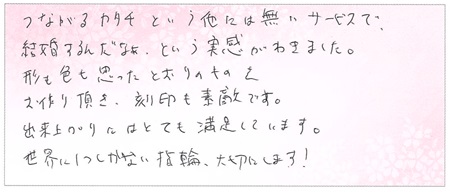 つながるカタチという他には無いサービスで、
結婚するんだなぁ、という実感がわきました。
形も色も思ったとおりのものを
お作り頂き、刻印も素敵です。
出来上がりにはとても満足しています。
世界に1つしかない指輪、大切にします!